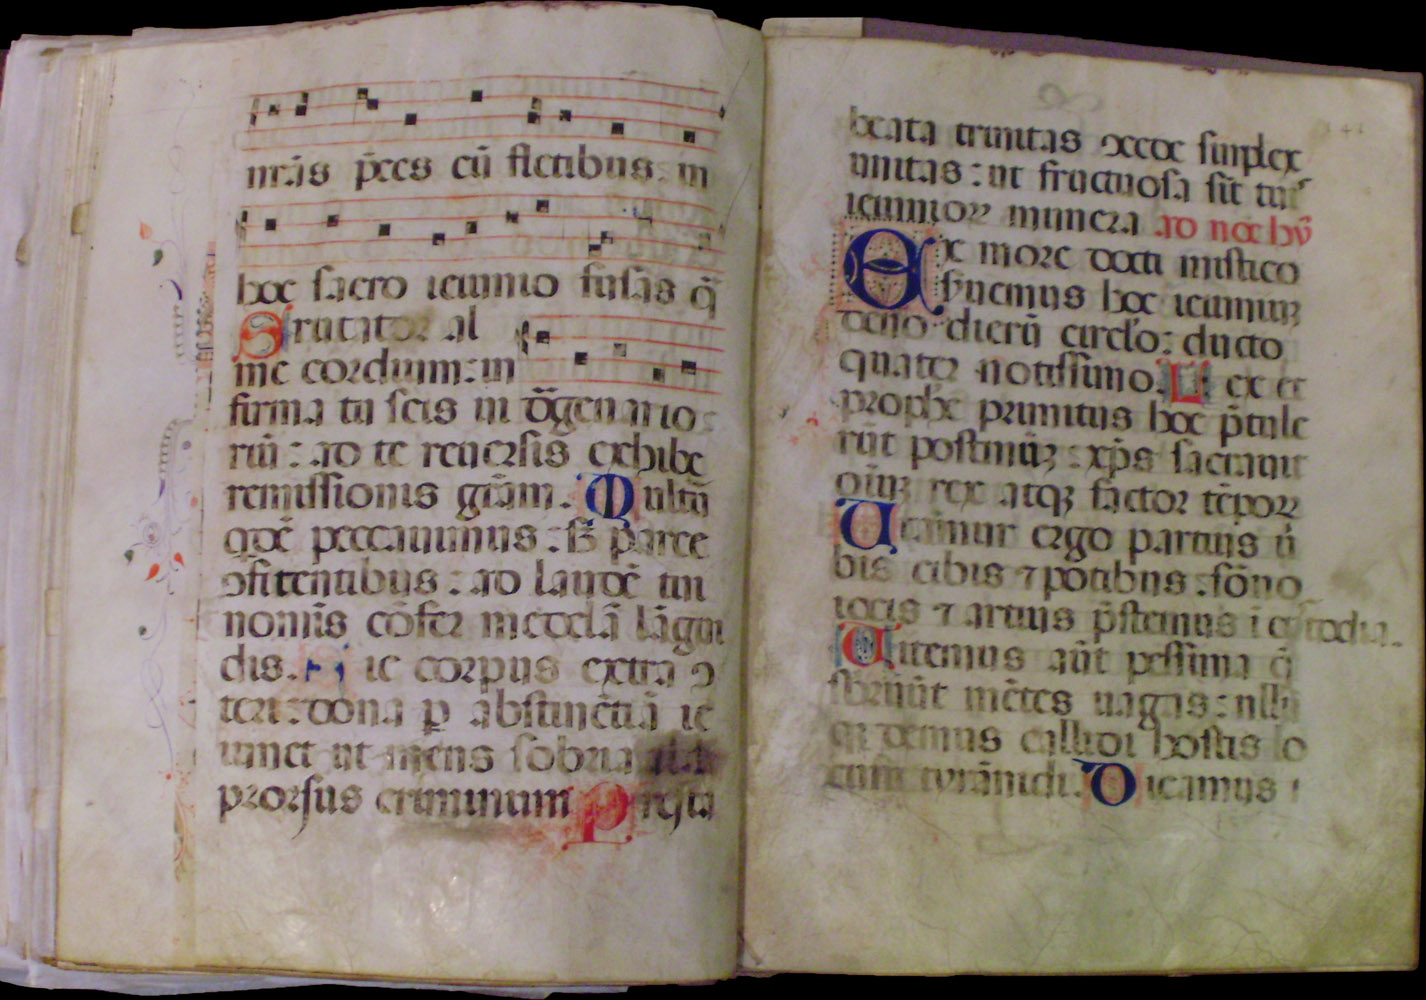 nr̄as p̄ces cū fletibus: in
hoc sacro ieiunio fusas q̄
Scrutator al
me cordium: in
firma tu scis
riū: ad te reuersis exhibe
remissionis gr̄am. Multū
qdē peccauimus: sꝫ parce
ↄfitentibus: ad laudē tui
nominis cōfer medelā lāgui
dis. Sic corpus extra ↄ
teri: dona p abstinētiā ie
iunet ut mens sobria
prorsus criminum Presta
beata trinitas ↄcede simplex
unitas: ut fructuosa sīt tuis
ieiunioꝝ munera ad noc hȳ
Ex more docti mistico
seruemus hoc ieiuniuꝫ
deno dierū circlo: ducto
quater notissimo. Lex et
prophe primitus hoc p̄tule
rūt postmoduꝫ: xp̄s sacrauit
oīuꝫ rex atqꝫ factor tēpoꝝ
Utamur ergo parcius ū
bis cibis ⁊ potibus: sōno
iocis ⁊ artius p̄stemus i custodia.
Uitemus aūt pessima q̄
sbruūt mētes uagas: nullū
qi demus callidi hostis lo
cum tyrānidi. Dicamus